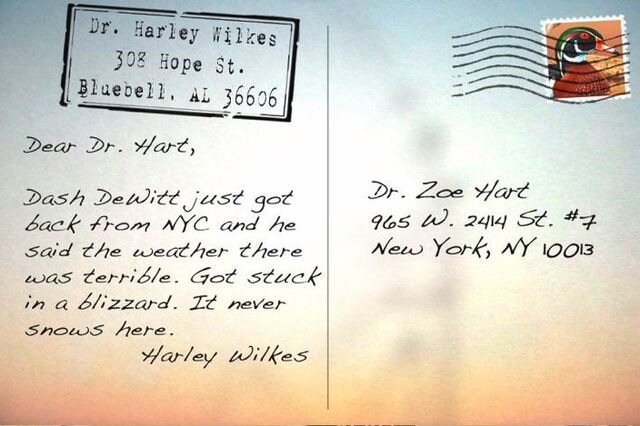 Dr. Harley Wilkes
308 Hope St.
Bluebell, AL 36606
Dear Dr. Hart,
Dash DeWitt just got
back from NYC and he
said the weather there
was terrible. Got stuck
in a blizzard. It never
snows here.
Harley Wilkes
Dr. Zoe Hart
965 W. 24th St. #7
New York, NY 10013